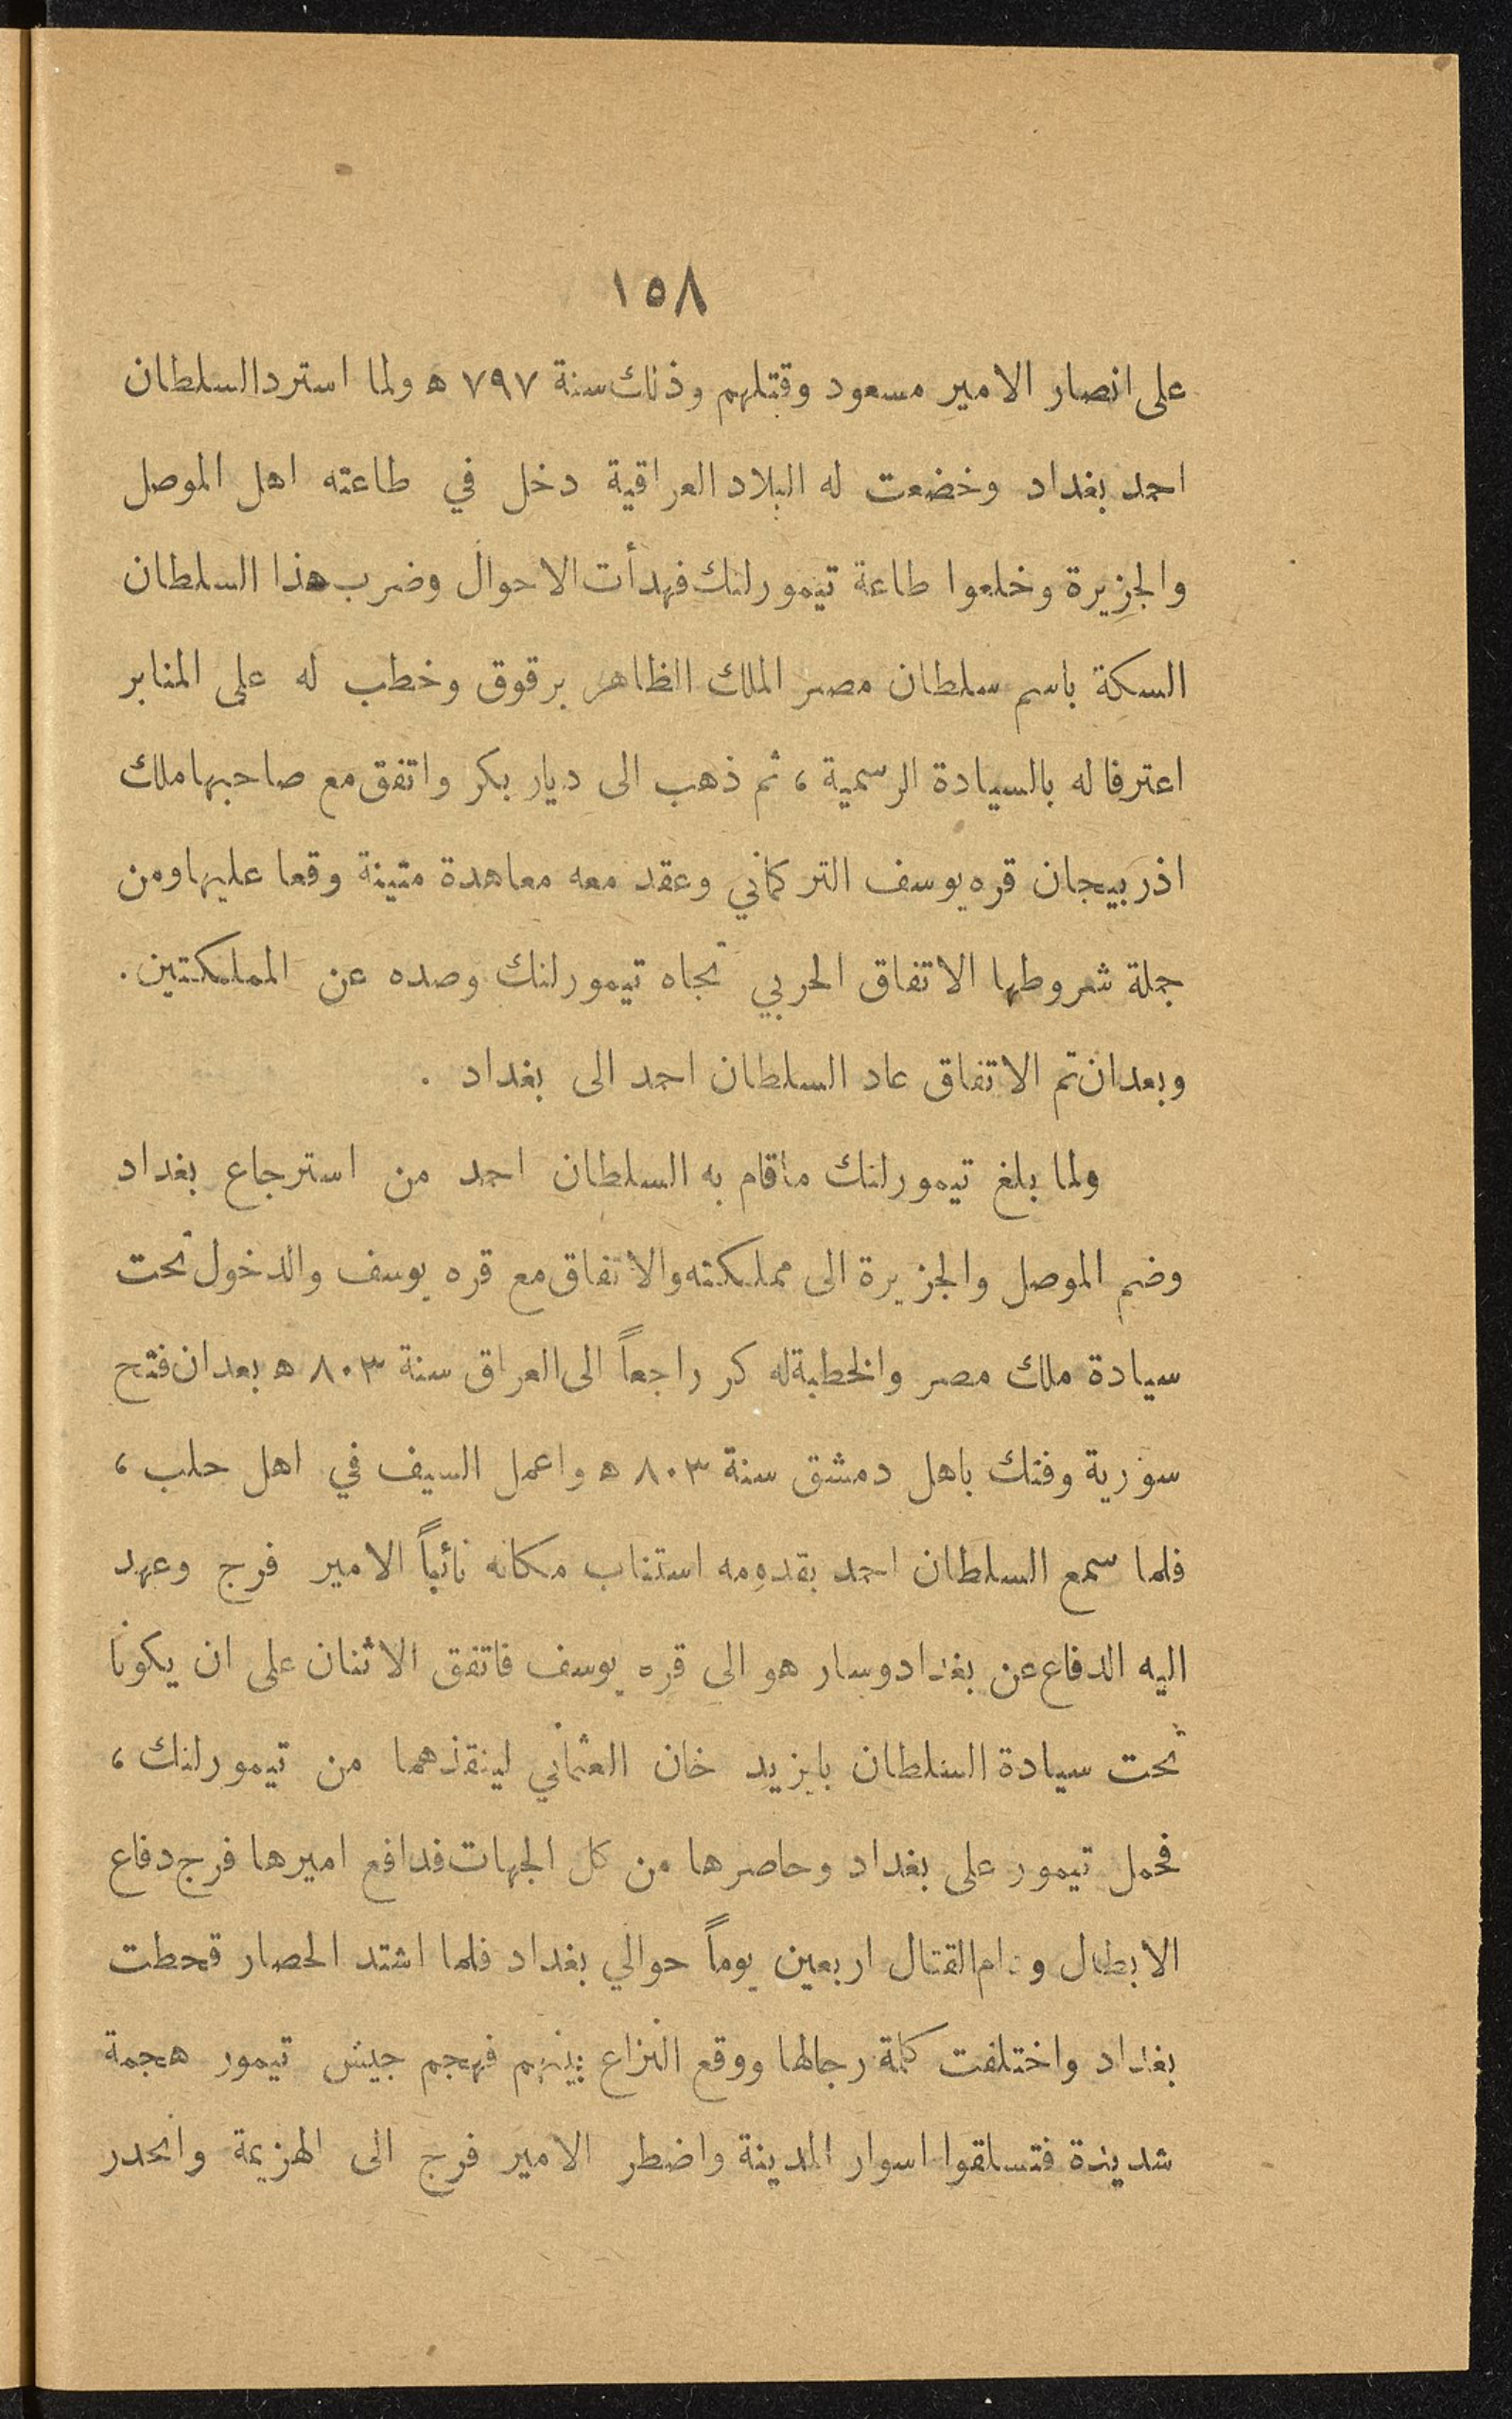 ١٥٨
على انصار الامير مسعود وقتلهم وذلك سنة ٧٩٧ ه‍ ولما استرد السلطان
احمد بغداد وخضعت له البلاد العراقية دخل في طاعته اهل الموصل
والجزيرة وخلعوا طاعة تيمورلنك فهدأت الاحوال وضرب هذا السلطان
السكة باسم سلطان مصر الملك الظاهر برقوق وخطب له على المنابر
اعترفا له بالسيادة الرسمية ، ثم ذهب الى ديار بكر واتفق مع صاحبها ملك
اذربيجان قره يوسف التركماني وعقد معه معاهدة متينة وقعا عليها ومن
جملة شعروطها الاتفاق الحربي تجاه تيمورلنك وصده عن المملكتين .
وبعدان تم الاتفاق عاد السلطان احمد الى بغداد .
ولما بلغ تيمورلنك ماقام به السلطان احمد من استرجاع بغداد
وضم الموصل والجزيرة الى مملكته والاتفاق مع قره يوسف والدخول تحت
سيادة ملك مصر والخطبة له كر راجعاً الى العراق سنة ٨٠٣ ه‍ بعد ان فتح
سورية وفتك باهل دمشق سنة ٨٠٣ ه‍ واعمل السيف في اهل حلب ،
فلما سمع السلطان احمد بقدومه استناب مكانه نائباً الامير فرج وعهد
اليه الدفاع عن بغداد وسار هو الى قره يوسف فاتفق الاثنان على ان يكونا
تحت سيادة السلطان بايزيد خان العثماني لينقذهما من تيمورلنك ،
فحمل تيمور على بغداد وحاصرها من كل الجهات فدافع اميرها فرج دفاع
الابطال ودام القتال اربعين يوماً حوالي بغداد فلما اشتد الحصار قحطت
بغداد واختلفت كلمة رجالها ووقع النزاع بينهم فهجم جيش تيمور هجمة
شديدة فتسلقوا اسوار المدينة واضطر الامير فرج الى الهزيمة وانحدر